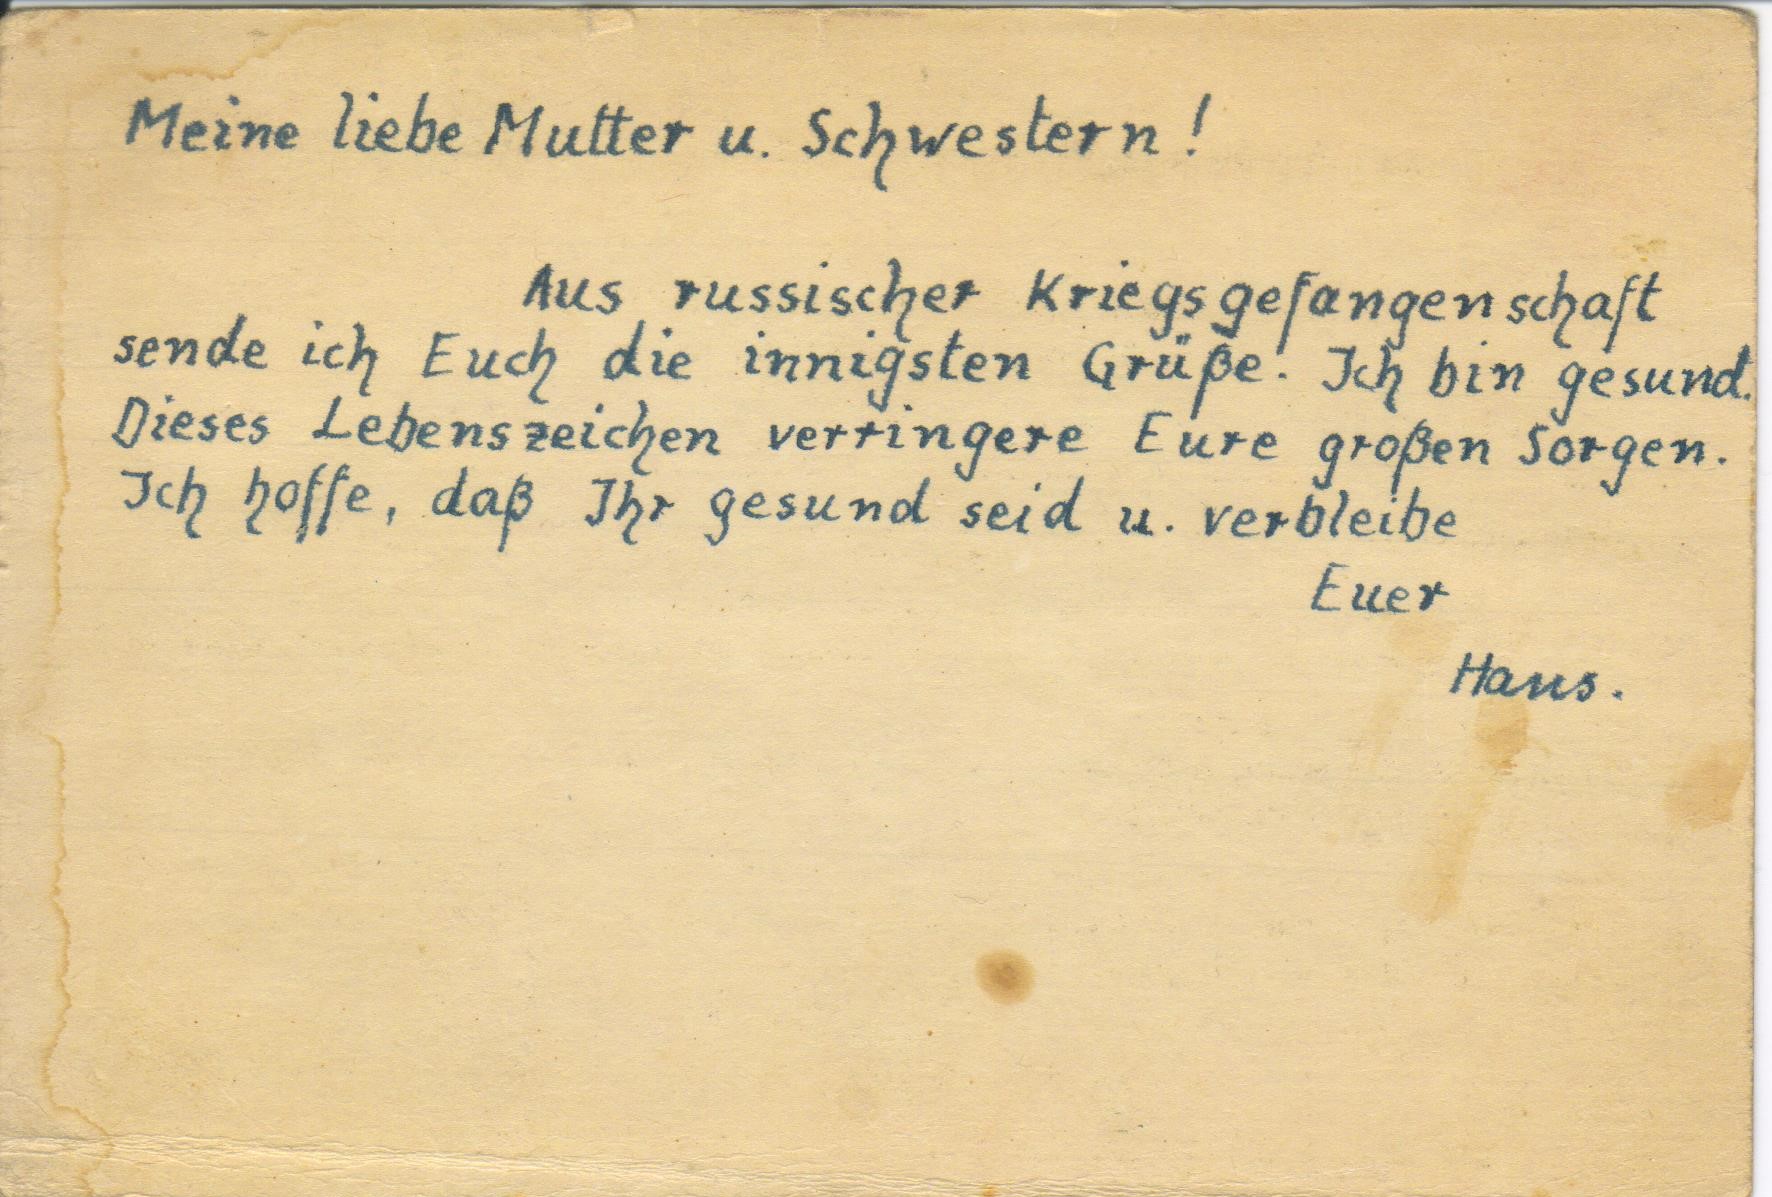 Meine liebe Mutter u. Schwestern!
Aus russischer Kriegsgefangenschaft
sende ich Euch die innigsten Grüße. Ich bin gesund.
Dieses Lebenszeichen verringere Eure großen Sorgen.
Ich hoffe, daß Ihr gesund seid u. verbleibe
Euer
Hans.